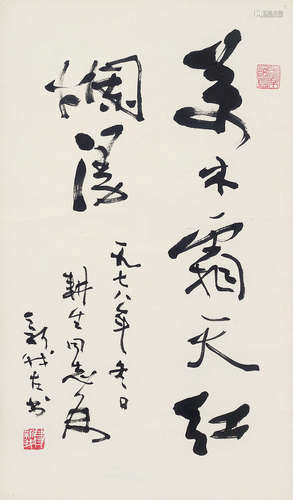 萬木霜天红
烂漫
一九七八年冬日
耕生同志属
新我左书